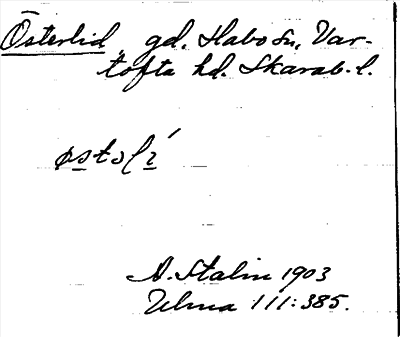 Österlid, gd, Habo sn, Var-
tofta hd. Skarab. l.
østolí
A. Stalin 1903
Ulma 111:385.